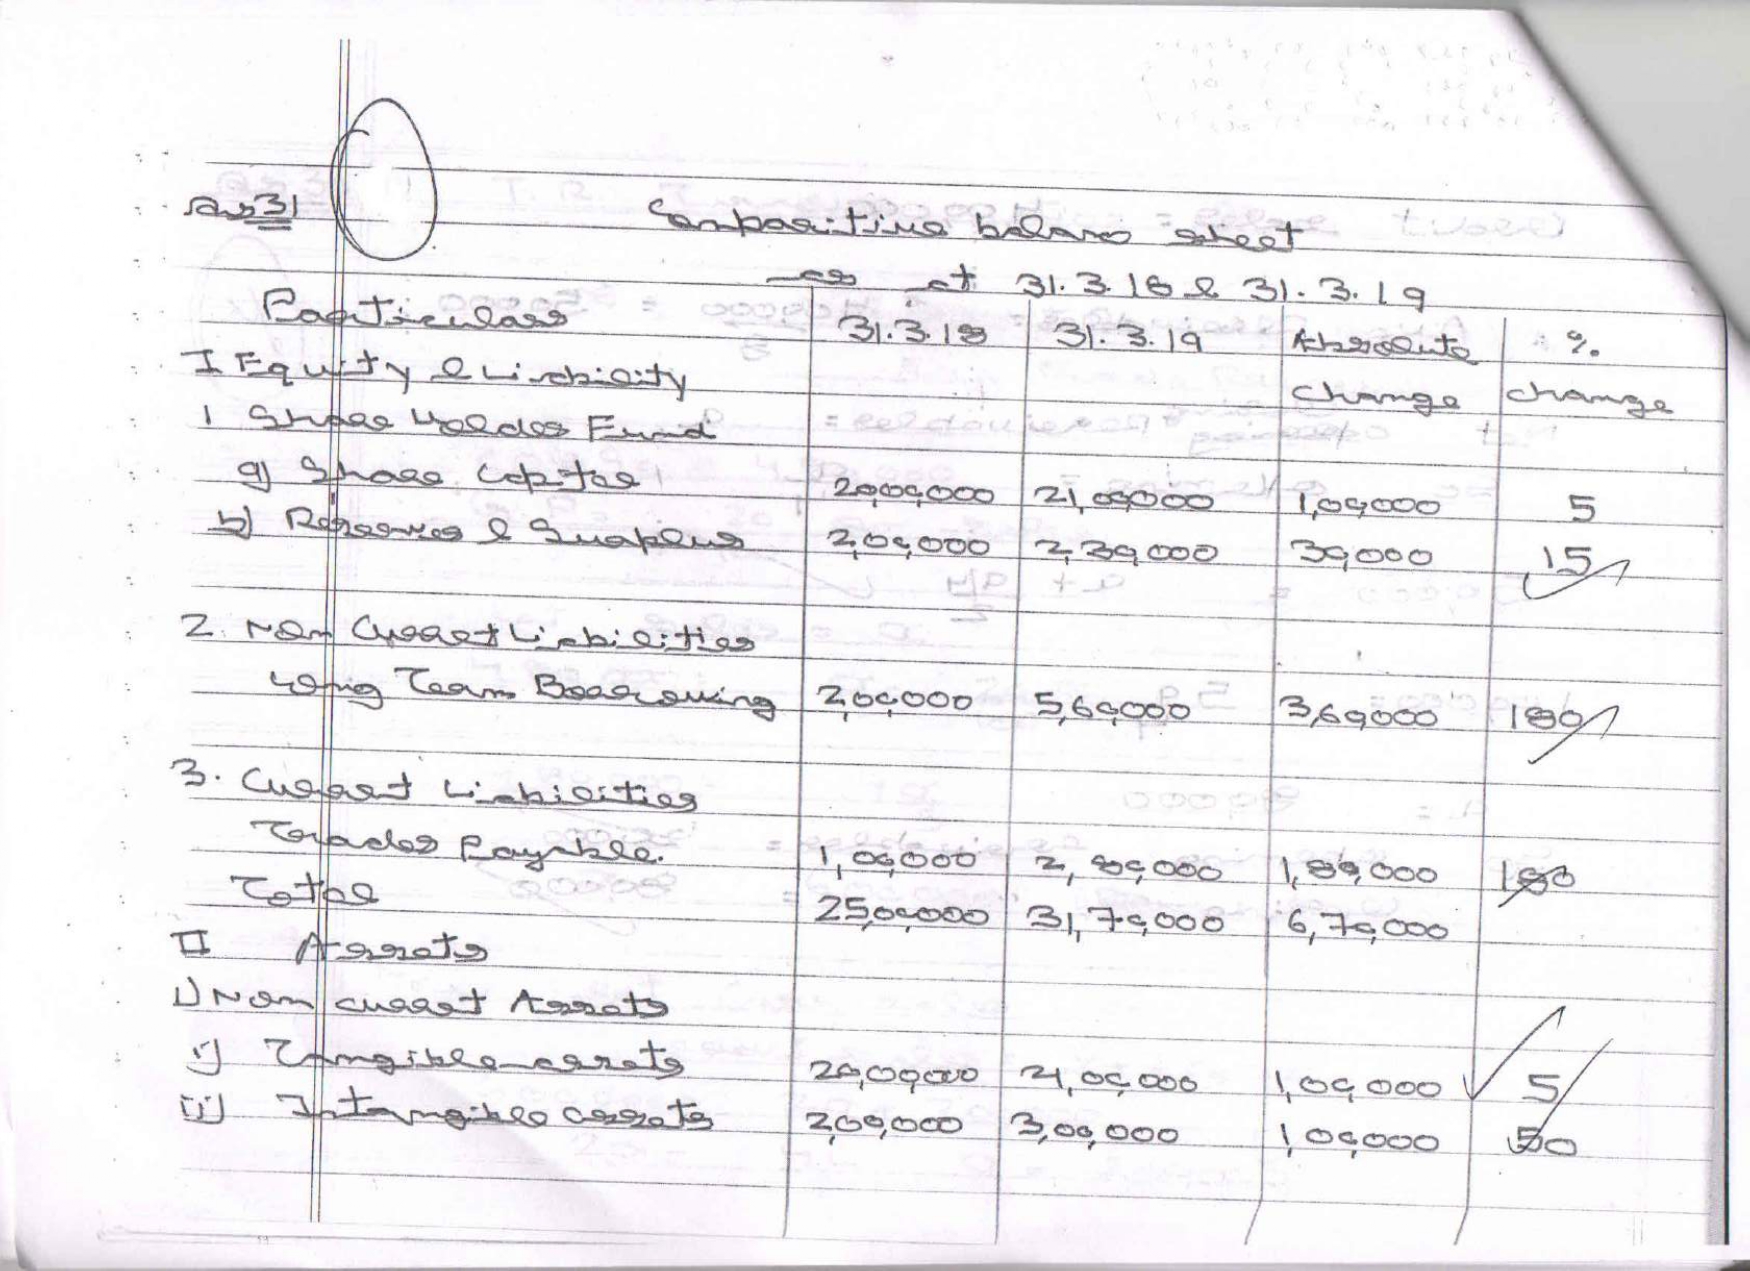 Ans 31
Comparitive balance sheet
as at 31.3.18 & 31.3.19
Particulars 31.3.18 31.3.19 Absolute %
I Equity & Liability Change change
1 Share Holder Fund
a) Share Capital 20,00,000 21,00,000 1,00,000 5
b) Reserves & Surplus 2,00,000 2,30,000 30,000 15
2. Non Current Liabilities
Long Team Borrowing 2,00,000 5,60,000 3,60,000 180
3. Current Liabilities
Trades Payable. 1,00,000 2,80,000 1,80,000 180
Total 25,00,000 31,70,000 6,70,000
II Assets
1) Non current Assets
i) Tangible assets 20,00,000 21,00,000 1,00,000 5
ii) Intangible assets 2,00,000 3,00,000 1,00,000 50